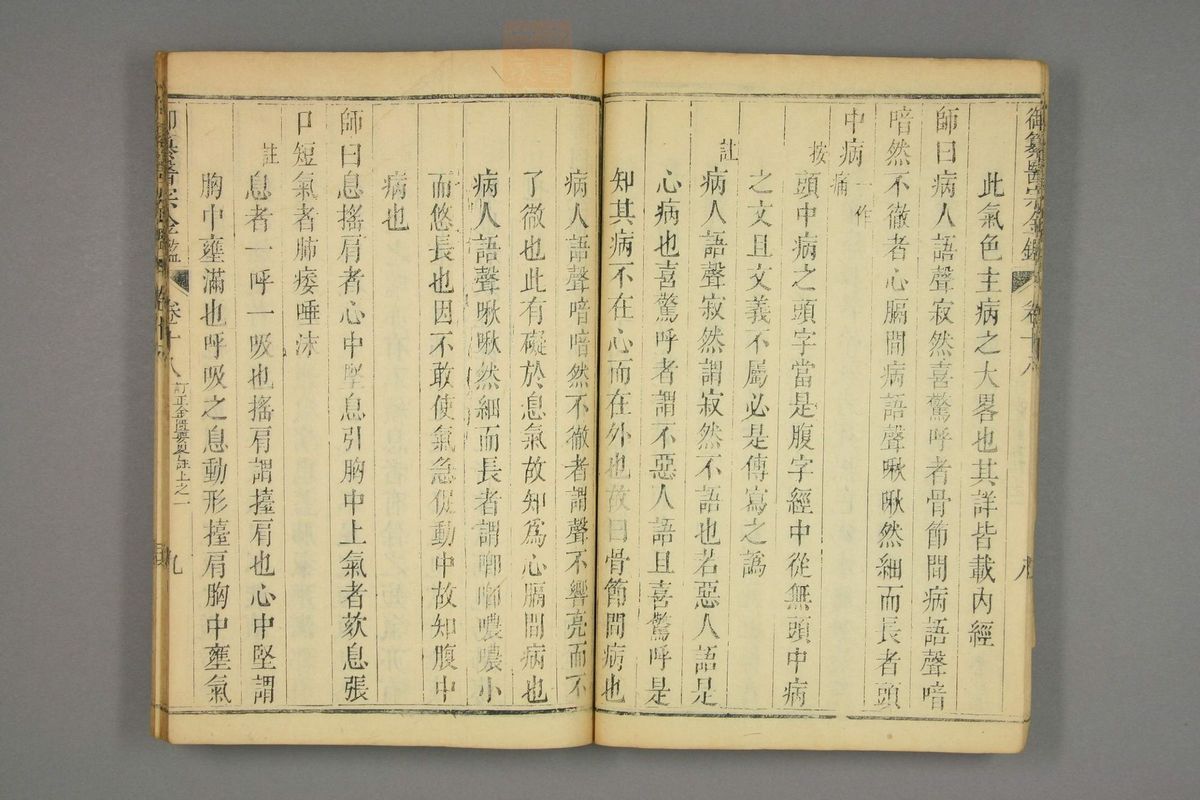 御纂醫宗金鑑
卷十八
此氣色主病之大畧也其詳皆載內經
師曰病人語聲寂然喜驚呼者骨節間病語聲喑
喑然不徹者心膈間病語聲啾啾然細而長者頭
中病一作痛
按頭中病之頭字當是腹字經中從無頭中病
之文且文義不屬必是傳寫之譌
註病人語聲寂然謂寂然不語也若惡人語是
心病也喜驚呼者謂不惡人語且喜驚呼是
知其病不在心而在外也故曰骨節間病也
病人語聲喑喑然不徹者謂聲不響亮而不
了徹也此有礙於息氣故知爲心膈間病也
病人語聲啾啾然細而長者謂唧唧噥噥小
而悠長也因不敢使氣急促動中故知腹中
病也
師曰息搖肩者心中堅息引胸中上氣者欬息張
口短氣者肺痿唾沫
註息者一呼一吸也搖肩謂擡肩也心中堅謂
胸中壅滿也呼吸之息動形擡肩胸中壅氣
御纂醫宗金鑑
卷十八
訂正金匱要畧註上之一
九